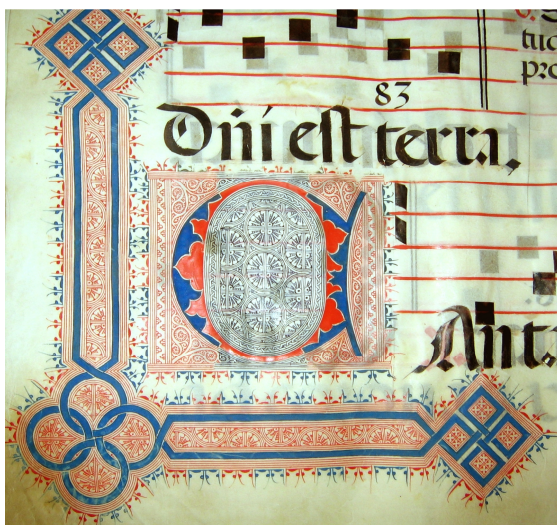 tud
pro
83
Dñi est terra.
C
Ant.